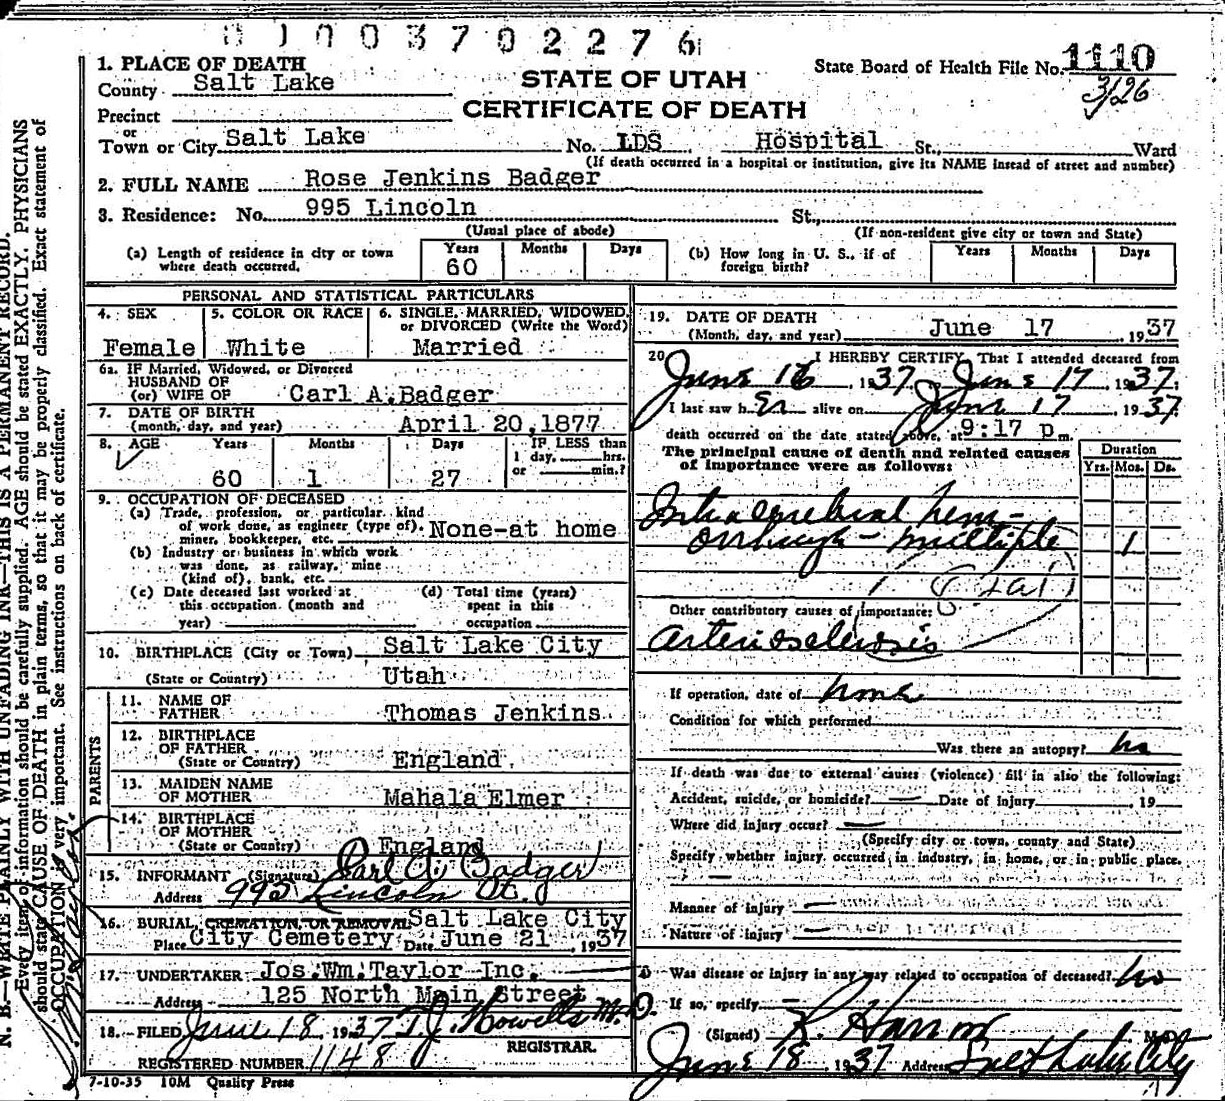 0 1 0 0 3 7 0 2 2 7 6
1. PLACE OF DEATH
County Salt Lake
STATE OF UTAH
State Board of Health File No. 1110
3/26
Precinct
CERTIFICATE OF DEATH
or
Town or City Salt Lake No. LDS Hospital St., Ward
(If death occurred in a hospital or institution, give its NAME instead of street and number)
2. FULL NAME Rose Jenkins Badger
3. Residence: No. 995 Lincoln St.,
(Usual place of abode) (If non-resident give city or town and State)
(a) Length of residence in city or town where death occurred. Years 60 Months Days
(b) How long in U. S., if of foreign birth? Years Months Days
PERSONAL AND STATISTICAL PARTICULARS
4. SEX Female
5. COLOR OR RACE White
6. SINGLE, MARRIED, WIDOWED, or DIVORCED (Write the Word) Married
6a. IF Married, Widowed, or Divorced
HUSBAND OF
(or) WIFE OF Carl A. Badger
7. DATE OF BIRTH
(month, day, and year) April 20, 1877
8. AGE Years Months Days IF LESS than
1 day, hrs.
or min.?
60 1 27
9. OCCUPATION OF DECEASED
(a) Trade, profession, or particular kind
of work done, as engineer (type of).
miner, bookkeeper, etc. None-at home
(b) Industry or business in which work
was done, as railway, mine
(kind of), bank, etc.
(c) Date deceased last worked at
this occupation. (month and
year)
(d) Total time (years)
spent in this
occupation
10. BIRTHPLACE (City or Town) Salt Lake City
(State or Country) Utah
PARENTS
11. NAME OF
FATHER Thomas Jenkins
12. BIRTHPLACE
OF FATHER
(State or Country) England
13. MAIDEN NAME
OF MOTHER Mahala Elmer
14. BIRTHPLACE
OF MOTHER
(State or Country) England
15. INFORMANT (Signature) Carl A. Badger
Address 995 Lincoln St.
16. BURIAL, CREMATION, OR REMOVAL Salt Lake City
Place City Cemetery Date June 21, 1937
17. UNDERTAKER Jos. Wm. Taylor Inc.
Address 125 North Main Street
18. FILED June 18, 1937 T. J. Howells M.D.
REGISTRAR.
REGISTERED NUMBER 1148
7-10-35 10M Quality Press
19. DATE OF DEATH
(Month, day, and year) June 17 1937
20. I HEREBY CERTIFY, That I attended deceased from
June 16, 1937, June 17, 1937.
I last saw h er alive on June 17 1937.
death occurred on the date stated above, at 9:17 p m.
The principal cause of death and related causes
of importance were as follows:
Duration
Yrs. Mos. Ds.
Intracerebral hem-
orrhage - multiple 1
Other contributory causes of importance:
arteriosclerosis
If operation, date of none
Condition for which performed
Was there an autopsy? no
If death was due to external causes (violence) fill in also the following:
Accident, suicide, or homicide? — Date of injury , 19
Where did injury occur? —
(Specify city or town, county and State)
Specify whether injury occurred in industry, in home, or in public place.
—
Manner of injury —
Nature of injury —
Was disease or injury in any way related to occupation of deceased? no
If so, specify —
(Signed) M. D.
June 18 1937 Address Salt Lake City
N. B.—WRITE PLAINLY WITH UNFADING INK—THIS IS A PERMANENT RECORD.
Every item of information should be carefully supplied. AGE should be stated EXACTLY. PHYSICIANS
should state CAUSE OF DEATH in plain terms, so that it may be properly classified. Exact statement of
OCCUPATION is very important. See instructions on back of certificate.